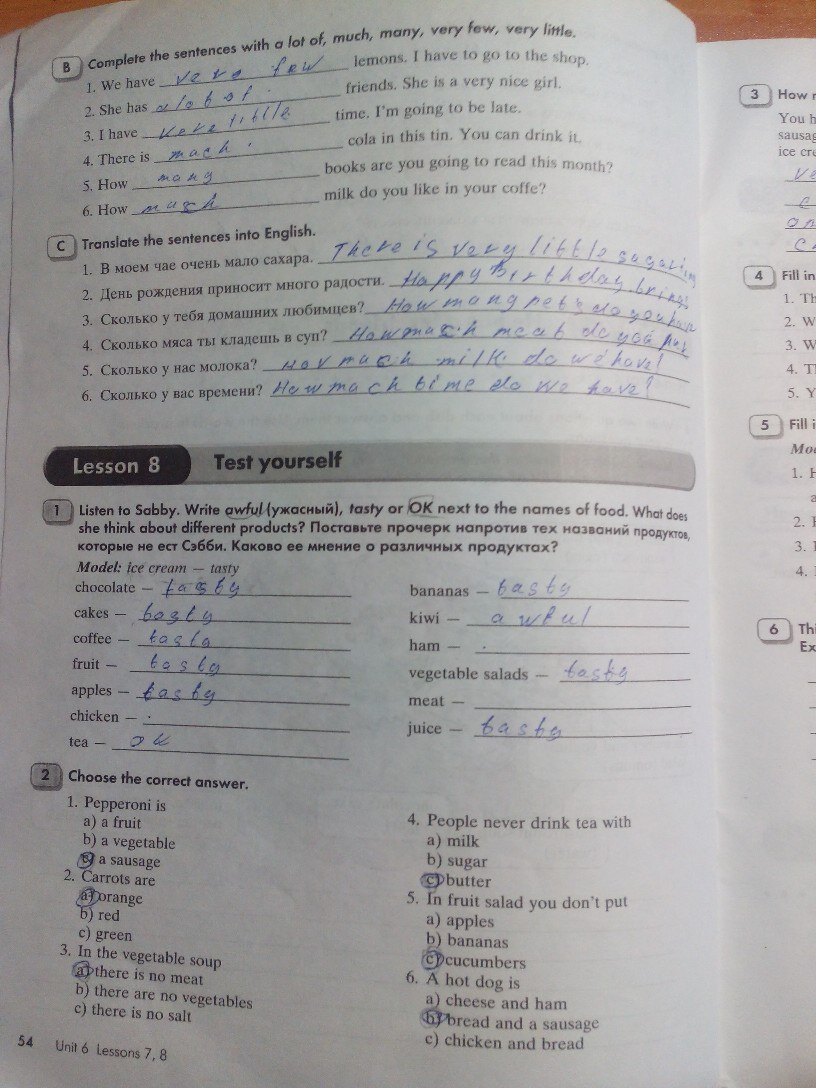 B Complete the sentences with a lot of, much, many, very few, very little.
1. We have very few lemons. I have to go to the shop.
2. She has a lot of friends. She is a very nice girl.
3. I have very little time. I'm going to be late.
4. There is mach cola in this tin. You can drink it.
5. How many books are you going to read this month?
6. How much milk do you like in your coffe?
C Translate the sentences into English.
1. В моем чае очень мало сахара. There is very little sugar in my
2. День рождения приносит много радости. Happy Birthday brings
3. Сколько у тебя домашних любимцев? How many pets do you have
4. Сколько мяса ты кладешь в суп? How mach meat do you put
5. Сколько у нас молока? How mach milk do we have!
6. Сколько у вас времени? How mach time do we have!
Lesson 8 Test yourself
1 Listen to Sabby. Write awful (ужасный), tasty or OK next to the names of food. What does
she think about different products? Поставьте прочерк напротив тех названий продуктов,
которые не ест Сэбби. Каково ее мнение о различных продуктах?
Model: ice cream — tasty
chocolate — tasty
cakes — tasty
coffee — tasty
fruit — tasty
apples — tasty
chicken —
tea — ok
bananas — tasty
kiwi — awful
ham —
vegetable salads — tasty
meat —
juice — tasty
2 Choose the correct answer.
1. Pepperoni is
a) a fruit
b) a vegetable
c) a sausage
2. Carrots are
a) orange
b) red
c) green
3. In the vegetable soup
a) there is no meat
b) there are no vegetables
c) there is no salt
4. People never drink tea with
a) milk
b) sugar
c) butter
5. In fruit salad you don't put
a) apples
b) bananas
c) cucumbers
6. A hot dog is
a) cheese and ham
b) bread and a sausage
c) chicken and bread
54 Unit 6 Lessons 7, 8
3 How
You
ice
4 Fill in
1.
2.
3.
4.
5.
5 Fill
1.
2.
3.
4.
6